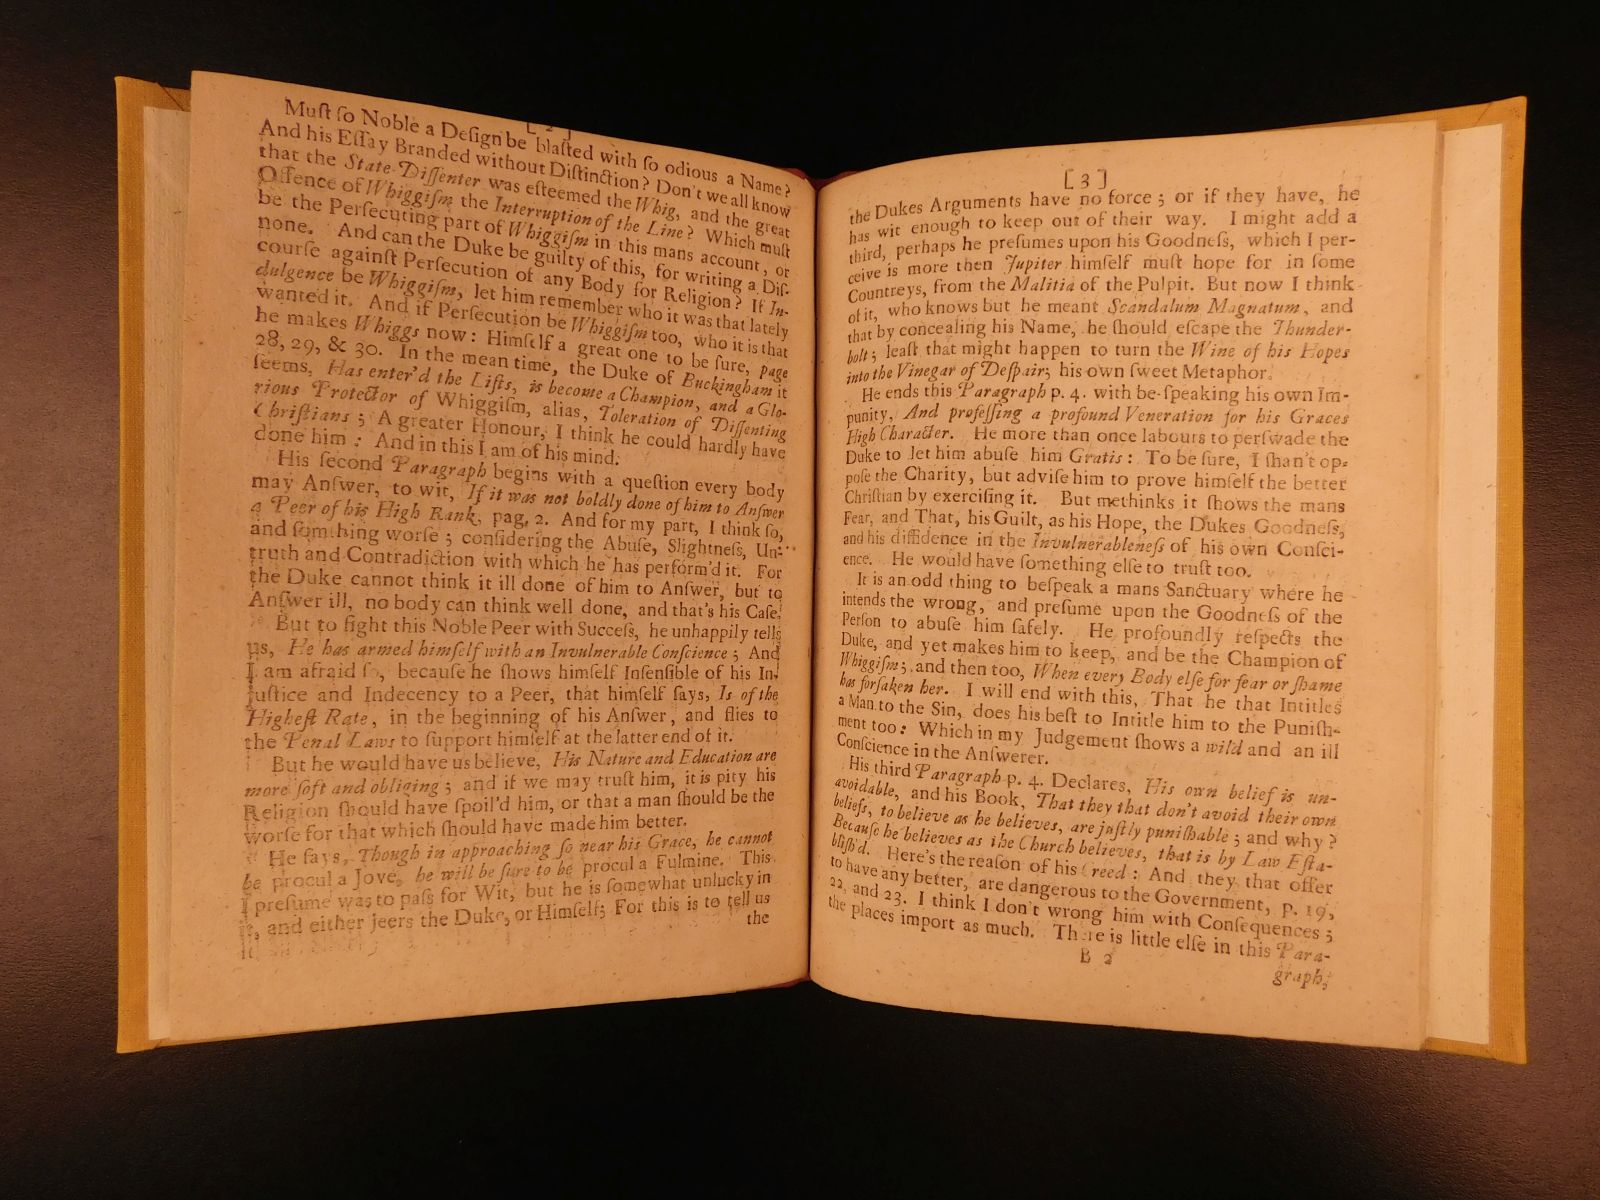 [ 2 ]
Muſt ſo Noble a Deſign be blaſted with ſo odious a Name?
And his Eſſay Branded without Diſtinction? Don't we all know
that the State-Diſſenter was eſteemed the Whig, and the great
Offence of Whiggiſm the Interruption of the Line? Which muſt
be the Perſecuting part of Whiggiſm in this mans account, or
none. And can the Duke be guilty of this, for writing a Diſ-
courſe againſt Perſecution of any Body for Religion? If In-
dulgence be Whiggiſm, let him remember who it was that lately
wanted it. And if Perſecution be Whiggiſm too, who it is that
he makes Whiggs now: Himſelf a great one to be ſure, page
28, 29, & 30. In the mean time, the Duke of Buckingham it
ſeems, Has enter'd the Liſts, is become a Champion, and a Glo-
rious Protector of Whiggiſm, alias, Toleration of Diſſenting
Chriſtians; A greater Honour, I think he could hardly have
done him: And in this I am of his mind.
His ſecond Paragraph begins with a queſtion every body
may Anſwer, to wit, If it was not boldly done of him to Anſwer
a Peer of his High Rank, pag. 2. And for my part, I think ſo,
and ſomthing worſe; conſidering the Abuſe, Slightneſs, Un-
truth and Contradiction with which he has perform'd it. For
the Duke cannot think it ill done of him to Anſwer, but to
Anſwer ill, no body can think well done, and that's his Caſe.
But to fight this Noble Peer with Succeſs, he unhappily tells
us, He has armed himſelf with an Invulnerable Conſcience; And
I am afraid ſo, becauſe he ſhows himſelf Inſenſible of his In-
juſtice and Indecency to a Peer, that himſelf ſays, Is of the
Higheſt Rate, in the beginning of his Anſwer, and flies to
the Penal Laws to ſupport himſelf at the latter end of it.
But he would have us believe, His Nature and Education are
more ſoft and obliging; and if we may truſt him, it is pity his
Religion ſhould have ſpoil'd him, or that a man ſhould be the
worſe for that which ſhould have made him better.
He ſays, Though in approaching ſo near his Grace, he cannot
be procul a Jove, he will be ſure to be procul a Fulmine. This
I preſume was to paſs for Wit, but he is ſomewhat unlucky in
it, and either jeers the Duke, or Himſelf; For this is to tell us
the
[ 3 ]
the Dukes Arguments have no force; or if they have, he
has wit enough to keep out of their way. I might add a
third, perhaps he preſumes upon his Goodneſs, which I per-
ceive is more then Jupiter himſelf muſt hope for in ſome
Countreys, from the Malitia of the Pulpit. But now I think
of it, who knows but he meant Scandalum Magnatum, and
that by concealing his Name, he ſhould eſcape the Thunder-
bolt; leaſt that might happen to turn the Wine of his Hopes
into the Vinegar of Deſpair; his own ſweet Metaphor.
He ends this Paragraph p. 4. with be-ſpeaking his own Im-
punity, And profeſſing a profound Veneration for his Graces
High Character. He more than once labours to perſwade the
Duke to let him abuſe him Gratis: To be ſure, I ſhan't op-
poſe the Charity, but adviſe him to prove himſelf the better
Chriſtian by exerciſing it. But methinks it ſhows the mans
Fear, and That, his Guilt, as his Hope, the Dukes Goodneſs,
and his diffidence in the Invulnerableneſs of his own Conſci-
ence. He would have ſomething elſe to truſt too.
It is an odd thing to beſpeak a mans Sanctuary where he
intends the wrong, and preſume upon the Goodneſs of the
Perſon to abuſe him ſafely. He profoundly reſpects the
Duke, and yet makes him to keep, and be the Champion of
Whiggiſm; and then too, When every Body elſe for fear or ſhame
has forſaken her. I will end with this, That he that Intitles
a Man to the Sin, does his beſt to Intitle him to the Puniſh-
ment too: Which in my Judgement ſhows a wild and an ill
Conſcience in the Anſwerer.
His third Paragraph p. 4. Declares, His own belief is un-
avoidable, and his Book, That they that don't avoid their own
beliefs, to believe as he believes, are juſtly puniſhable; and why?
Becauſe he believes as the Church believes, that is by Law Eſta-
bliſh'd. Here's the reaſon of his Creed: And they that offer
to have any better, are dangerous to the Government, p. 19,
22, and 23. I think I don't wrong him with Conſequences;
the places import as much. There is little elſe in this Para-
B 2
graph,